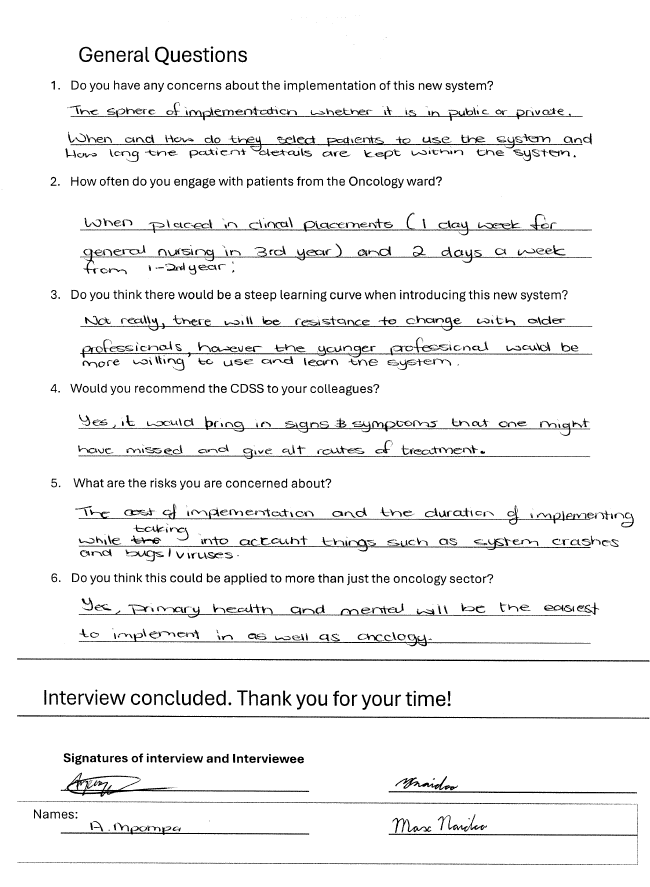 General Questions
1. Do you have any concerns about the implementation of this new system?
The sphere of implementation whether it is in public or private.
When and How do they select patients to use the system and
How long the patient details are kept within the system.
2. How often do you engage with patients from the Oncology ward?
When placed in clinal placements (1 day week for
general nursing in 3rd year) and 2 days a week
from 1-2nd year;
3. Do you think there would be a steep learning curve when introducing this new system?
Not really, there will be resistance to change with older
professionals, however the younger professional would be
more willing to use and learn the system.
4. Would you recommend the CDSS to your colleagues?
Yes, it would bring in signs & symptoms that one might
have missed and give alt routes of treatment.
5. What are the risks you are concerned about?
The cost of implementation and the duration of implementing
taking
while the into account things such as system crashes
and bugs/viruses.
6. Do you think this could be applied to more than just the oncology sector?
Yes, primary health and mental will be the easiest
to implement in as well as oncology.
Interview concluded. Thank you for your time!
Signatures of interview and Interviewee
Names:
A. Mpompa